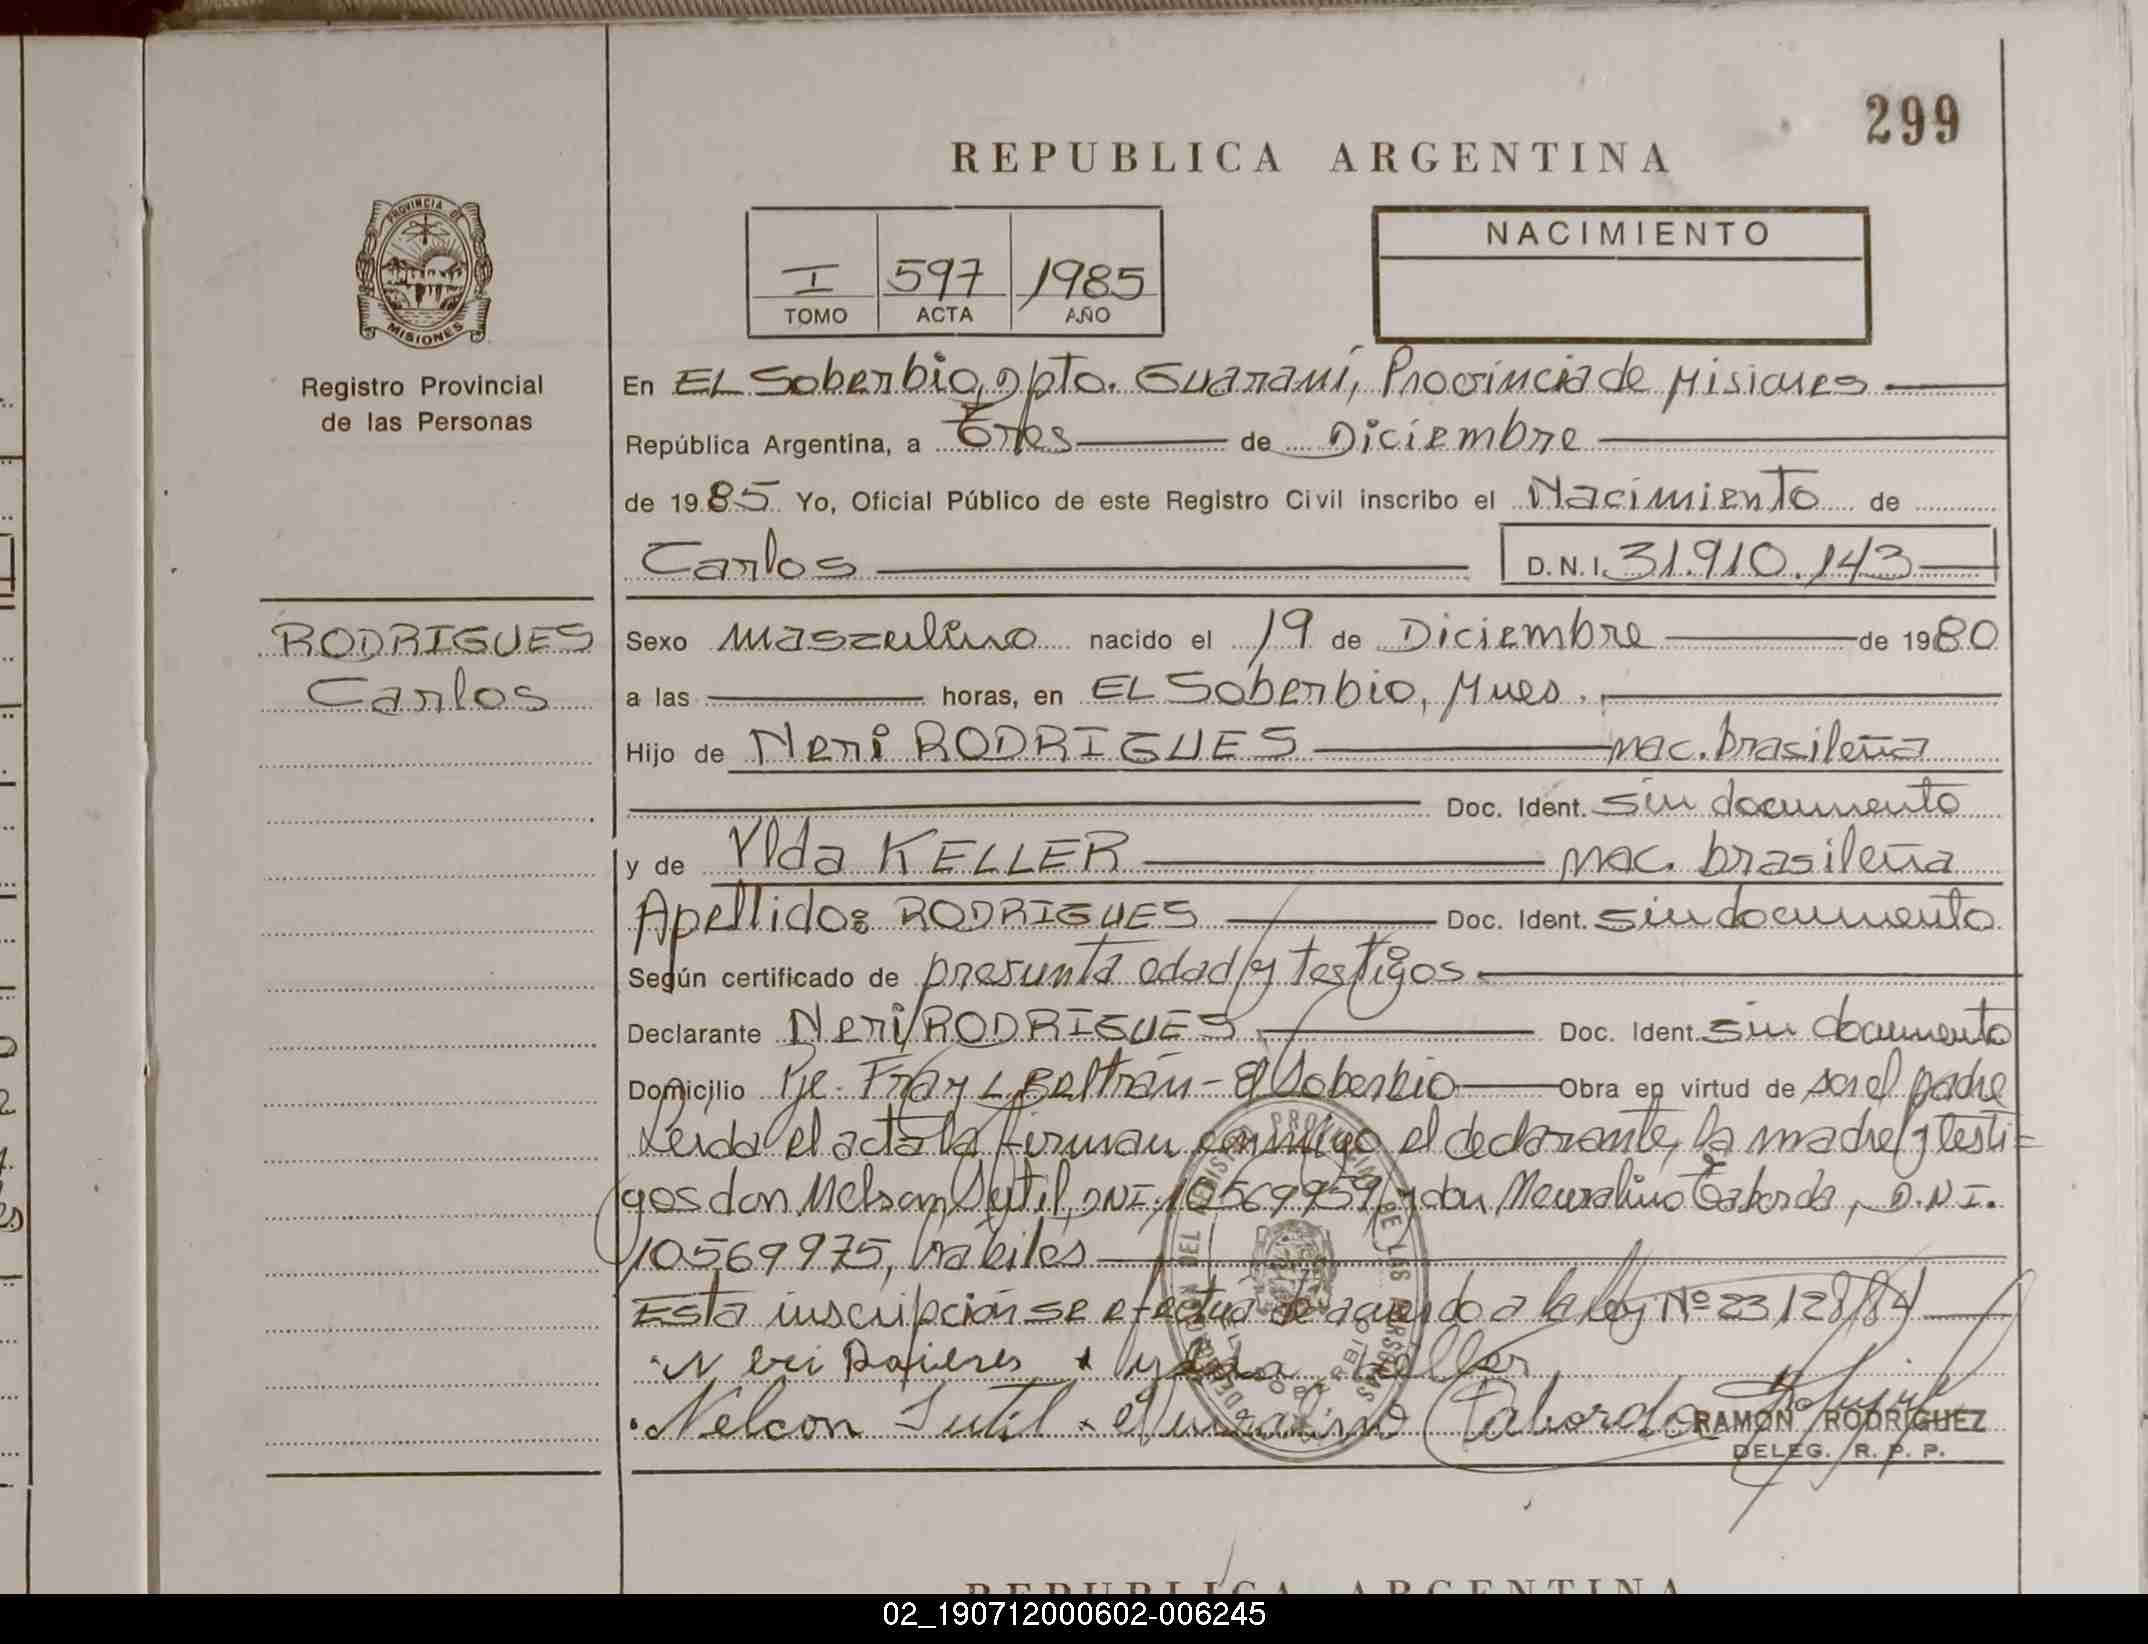 299
REPUBLICA ARGENTINA
PROVINCIA DE
MISIONES
Registro Provincial
de las Personas
I 597 1985
TOMO ACTA AÑO
NACIMIENTO
En EL Soberbio, Dpto. Guaraní, Provincia de Misiones
República Argentina, a Tres de Diciembre
de 1985 Yo, Oficial Público de este Registro Civil inscribo el Nacimiento de
Carlos D.N.I. 31.910.143
RODRIGUES
Carlos
Sexo masculino nacido el 19 de Diciembre de 1980
a las horas, en EL Soberbio, Mnes.
Hijo de Neri RODRIGUES nac. brasileña
Doc. Ident. sin documento
y de Ylda KELLER nac. brasileña
Apellido: RODRIGUES Doc. Ident. sin documento
Según certificado de presunta edad y testigos
Declarante Neri RODRIGUES Doc. Ident. sin documento
Domicilio Pje. Fray L Beltrán - El Soberbio Obra en virtud de ser el padre
Leida el acta la firman conmigo el declarante, la madre y testi=
gos don Nelson Sutil, DNI. 10569959 y don Meuralino Taborda, D.N.I.
10569975, habiles
Esta inscripción se efectua de acuerdo a la ley Nº 23128/84
Neri
Nelcon Sutil Taborda
RAMON RODRIGUEZ
DELEG. R. P. P.
REPUBLICA ARGENTINA
02_190712000602-006245